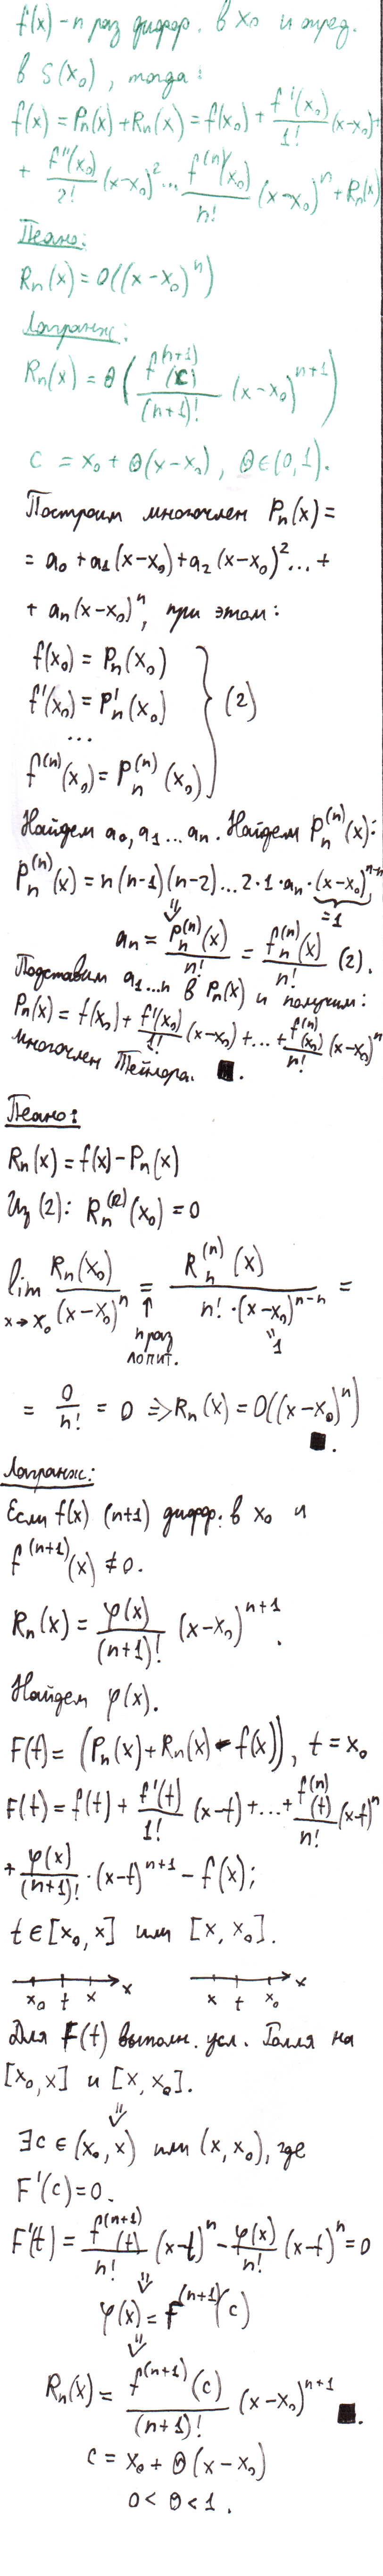 f(x) - n раз диффер. в x₀ и опред.
в S(x₀), тогда:
f(x) = Pₙ(x) + Rₙ(x) = f(x₀) + f'(x₀)/1! (x-x₀) +
+ f''(x₀)/2! (x-x₀)² ... f⁽ⁿ⁾(x₀)/n! (x-x₀)ⁿ + Rₙ(x)
Пеано:
Rₙ(x) = O((x-x₀)ⁿ)
Лагранж:
Rₙ(x) = θ(f⁽ⁿ⁺¹⁾(c)/(n+1)! (x-x₀)ⁿ⁺¹)
c = x₀ + θ(x-x₀), θ∈(0,1).
Построим многочлен Pₙ(x) =
= a₀ + a₁(x-x₀) + a₂(x-x₀)² ... +
+ aₙ(x-x₀)ⁿ, при этом:
f(x₀) = Pₙ(x₀)
f'(x₀) = P'ₙ(x₀) } (2)
...
f⁽ⁿ⁾(x₀) = Pₙ⁽ⁿ⁾(x₀)
Найдем a₀, a₁ ... aₙ. Найдем Pₙ⁽ⁿ⁾(x):
Pₙ⁽ⁿ⁾(x) = n(n-1)(n-2)...2·1·aₙ·(x-x₀)ⁿ⁻ⁿ
=1
⇓
aₙ = Pₙ⁽ⁿ⁾(x)/n! = fₙ⁽ⁿ⁾(x)/n! (2).
Подставим a₁...n в Pₙ(x) и получим:
Pₙ(x) = f(x₀) + f'(x₀)/1! (x-x₀) + ... + f⁽ⁿ⁾(x₀)/n! (x-x₀)ⁿ
многочлен Тейлора. ■.
Пеано:
Rₙ(x) = f(x) - Pₙ(x)
Из (2): Rₙ⁽ᵏ⁾(x₀) = 0
lim x→x₀ Rₙ(x₀)/(x-x₀)ⁿ = Rₙ⁽ⁿ⁾(x)/n!·(x-x₀)ⁿ⁻ⁿ =
↑ "1
n раз
лопит.
= 0/n! = 0 ⇒ Rₙ(x) = O((x-x₀)ⁿ)
■.
Лагранж:
Если f(x) (n+1) диффер. в x₀ и
f⁽ⁿ⁺¹⁾(x) ≠ 0.
Rₙ(x) = φ(x)/(n+1)! (x-x₀)ⁿ⁺¹.
Найдем φ(x).
F(t) = (Pₙ(x) + Rₙ(x) - f(x)), t = x₀
F(t) = f(t) + f'(t)/1! (x-t) + ... + f⁽ⁿ⁾(t)/n! (x-t)ⁿ
+ φ(x)/(n+1)! · (x-t)ⁿ⁺¹ - f(x);
t∈[x₀,x] или [x,x₀].
x₀ t x x x t x₀ x
Для F(t) выполн. усл. Голля на
[x₀,x] и [x,x₀].
⇓
∃c ∈ (x₀,x) или (x,x₀), где
F'(c) = 0.
F'(t) = f⁽ⁿ⁺¹⁾(t)/n! (x-t)ⁿ - φ(x)/n! (x-t)ⁿ = 0
⇓
φ(x) = F⁽ⁿ⁺¹⁾(c)
⇓
Rₙ(x) = f⁽ⁿ⁺¹⁾(c)/(n+1)! (x-x₀)ⁿ⁺¹ ■.
c = x₀ + θ(x-x₀)
0 < θ < 1.